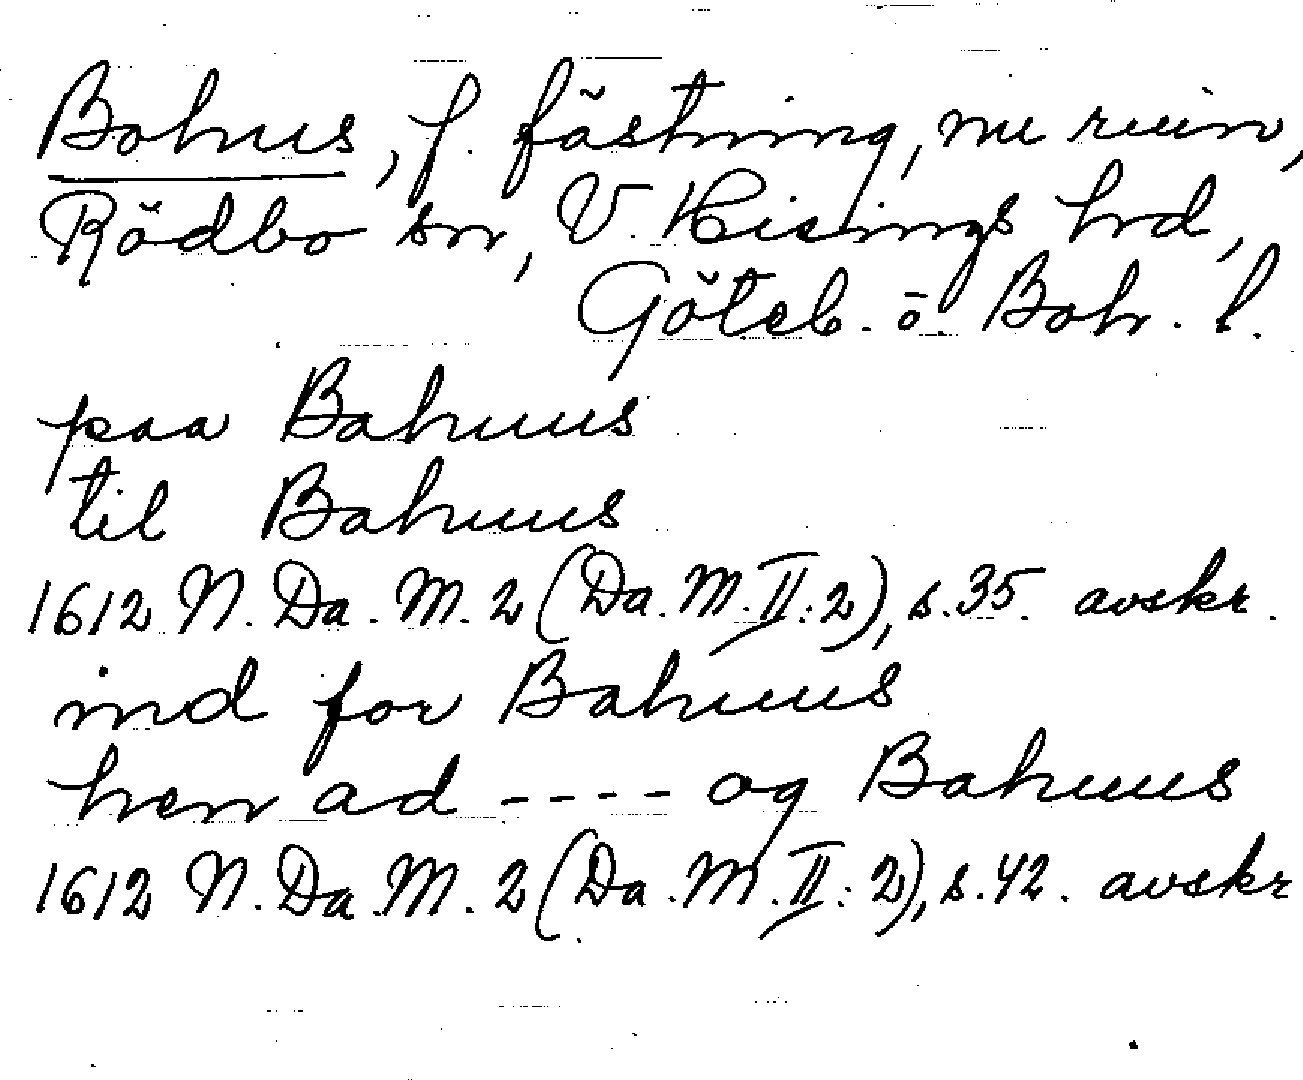 Bohus, f. fästning, nu ruin,
Rödbo sn, V. Hisings hrd,
Göteb. o. Boh. l.
paa Bahuus
til Bahuus
1612 N. Da. M. 2 (Da. M. II: 2), s. 35. avskr.
ind for Bahuus
hen ad ---- og Bahuus
1612 N. Da. M. 2 (Da. M. II: 2), s. 42. avskr